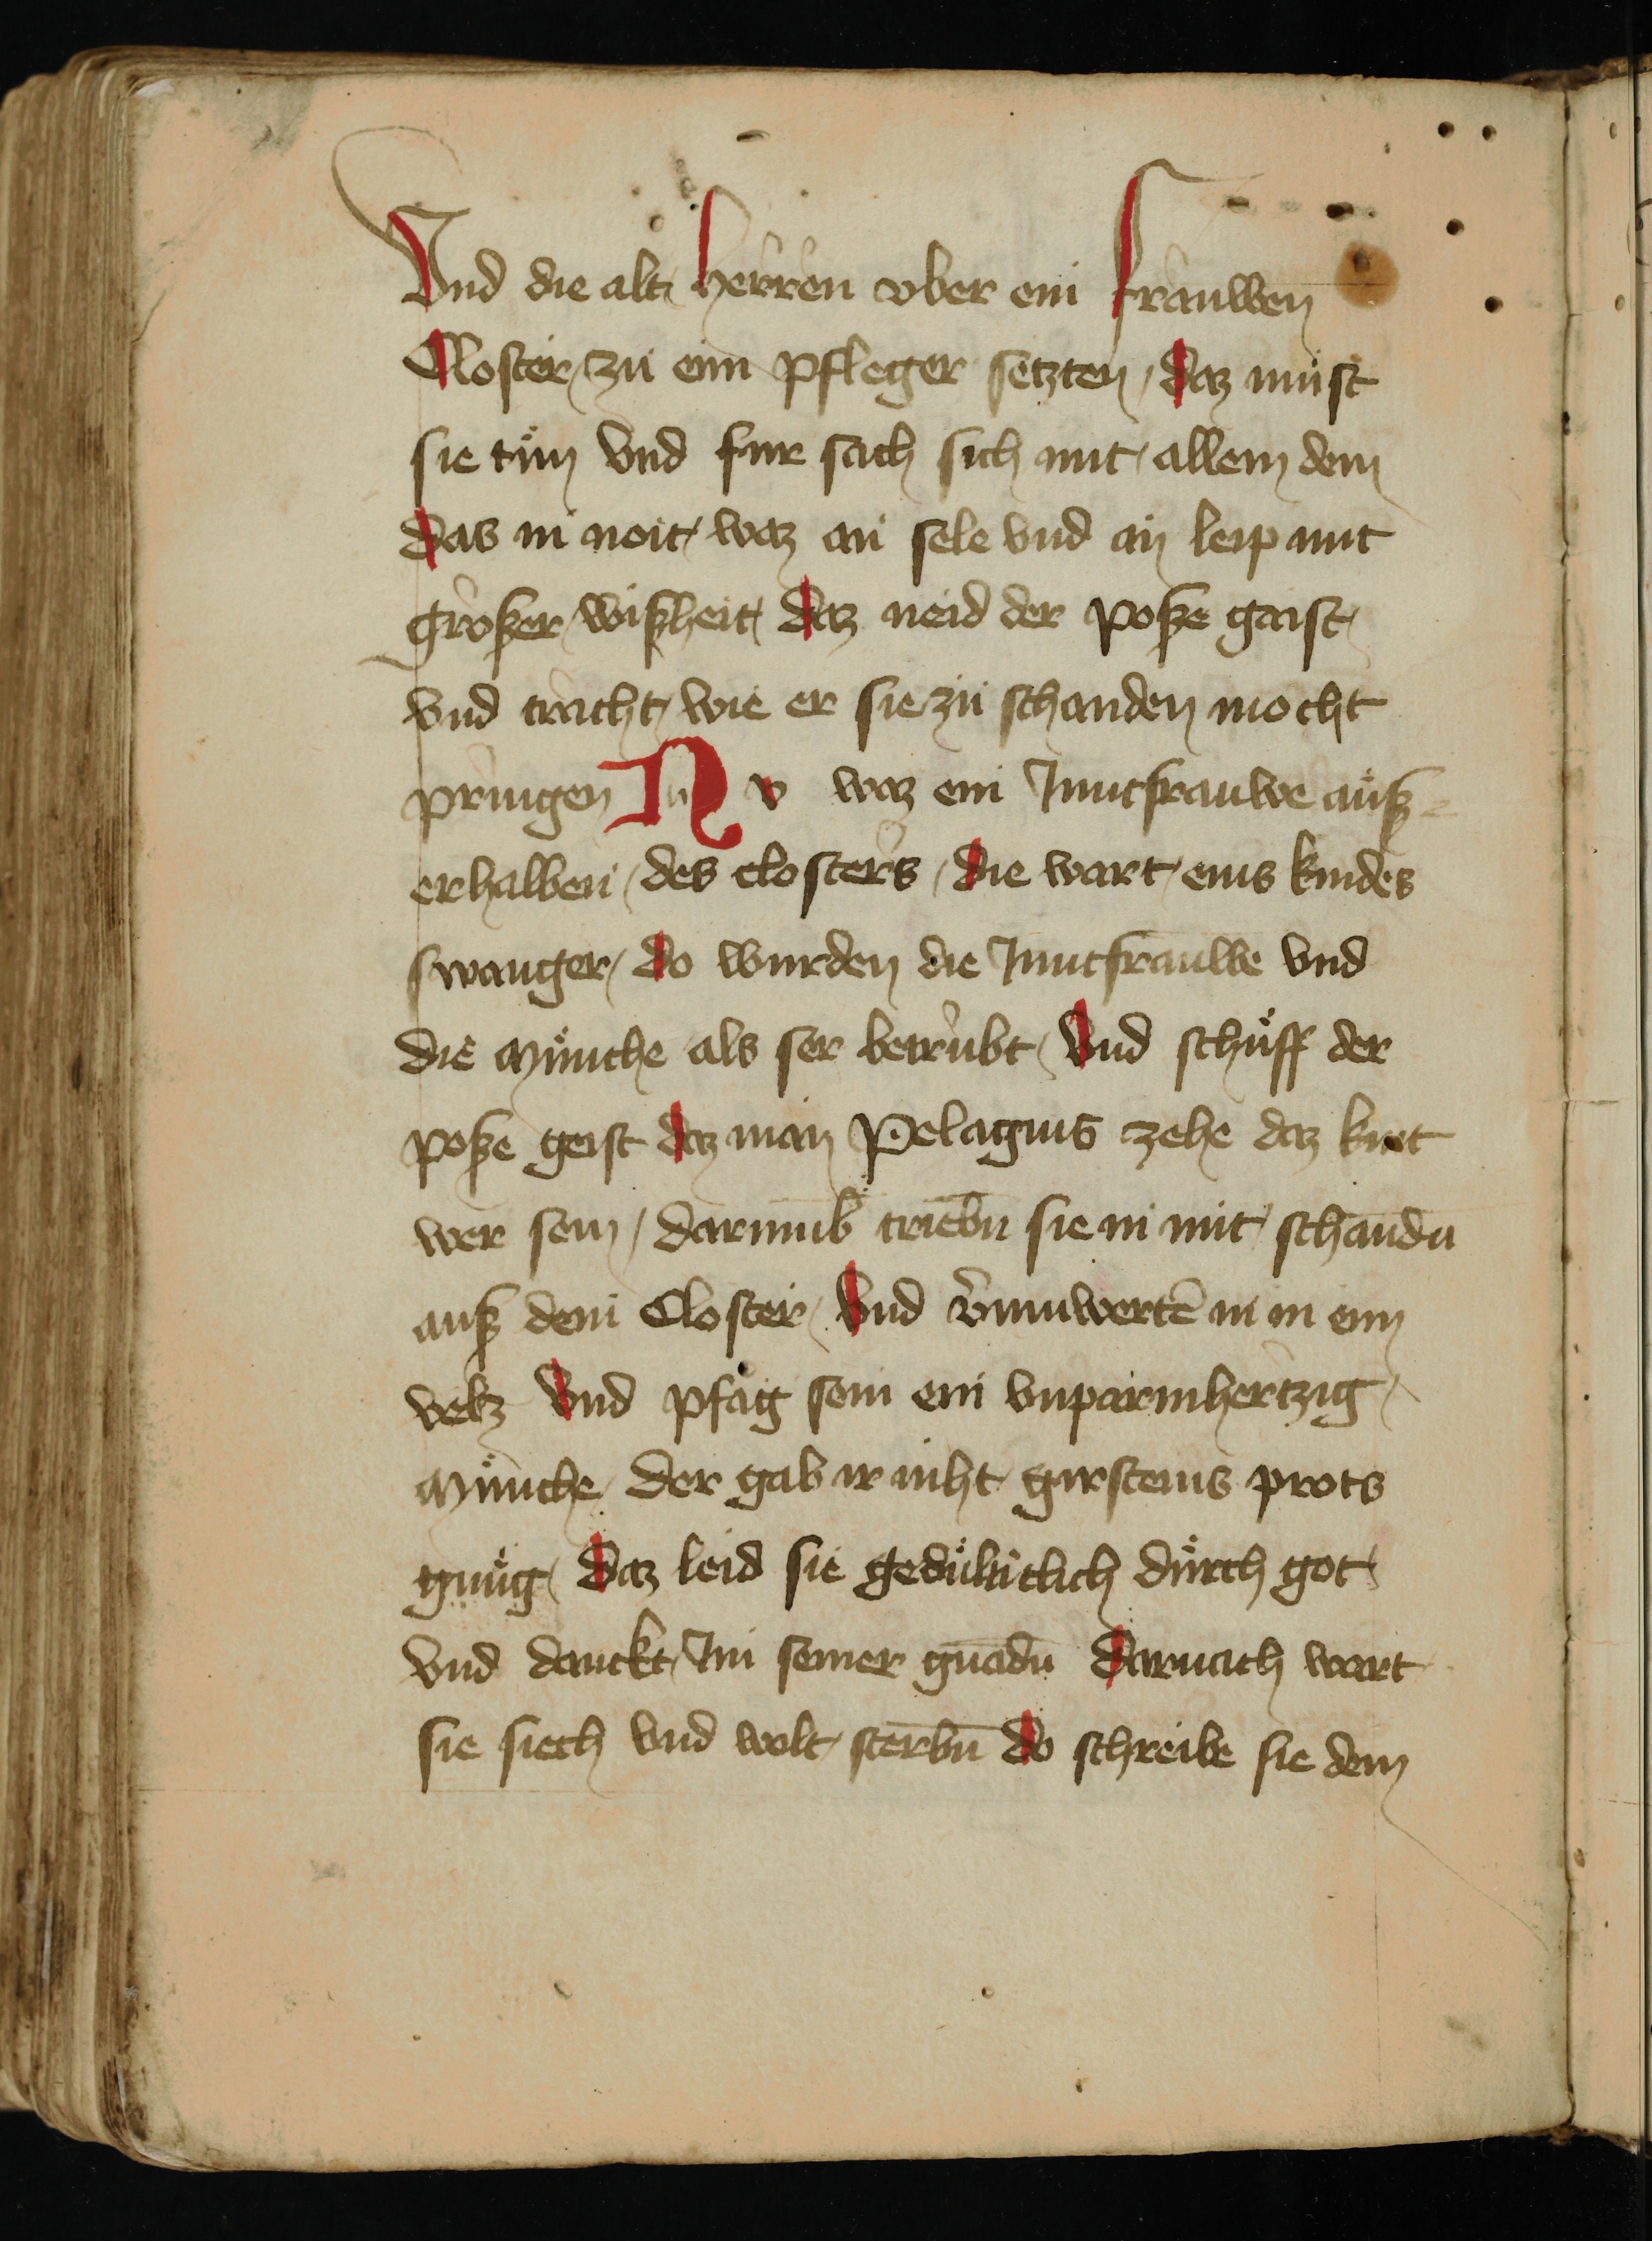 Vnd die alt herren vber ein frauwen
Closter zu eim pfleger setzten daz muͦst
sie tuͦn vnd fur sach sich mit allem dem
das in noit waz an sele vnd an leip mit
groszer wiszheit daz neid der posze gaist
vnd tracht wie er sie zu schanden mocht
pringen Nv waz ein Junctfrauwe auͦsz
erhalben des closters die wart eins kindes
swanger do wurden die Junctfrauwe vnd
die Muͦnche als ser betrubt Vnd schuͦff der
posze geist daz man Pelagius zehe daz kint
wer sein darumb triebn̄ sie in mit schandn̄
ausz dem Closter Vnd v̄muwertē in in ein
velz Vnd pflag sein ein vnparmhertzig
Muͦnche der gab ir niht girsteins prots
gnuͦg daz leid sie geduͦlticlich duͦrch got
vnd danckt Im seiner gnadn̄ Darnach wart
sie siech vnd wolt sterbn̄ do schreibe sie dem